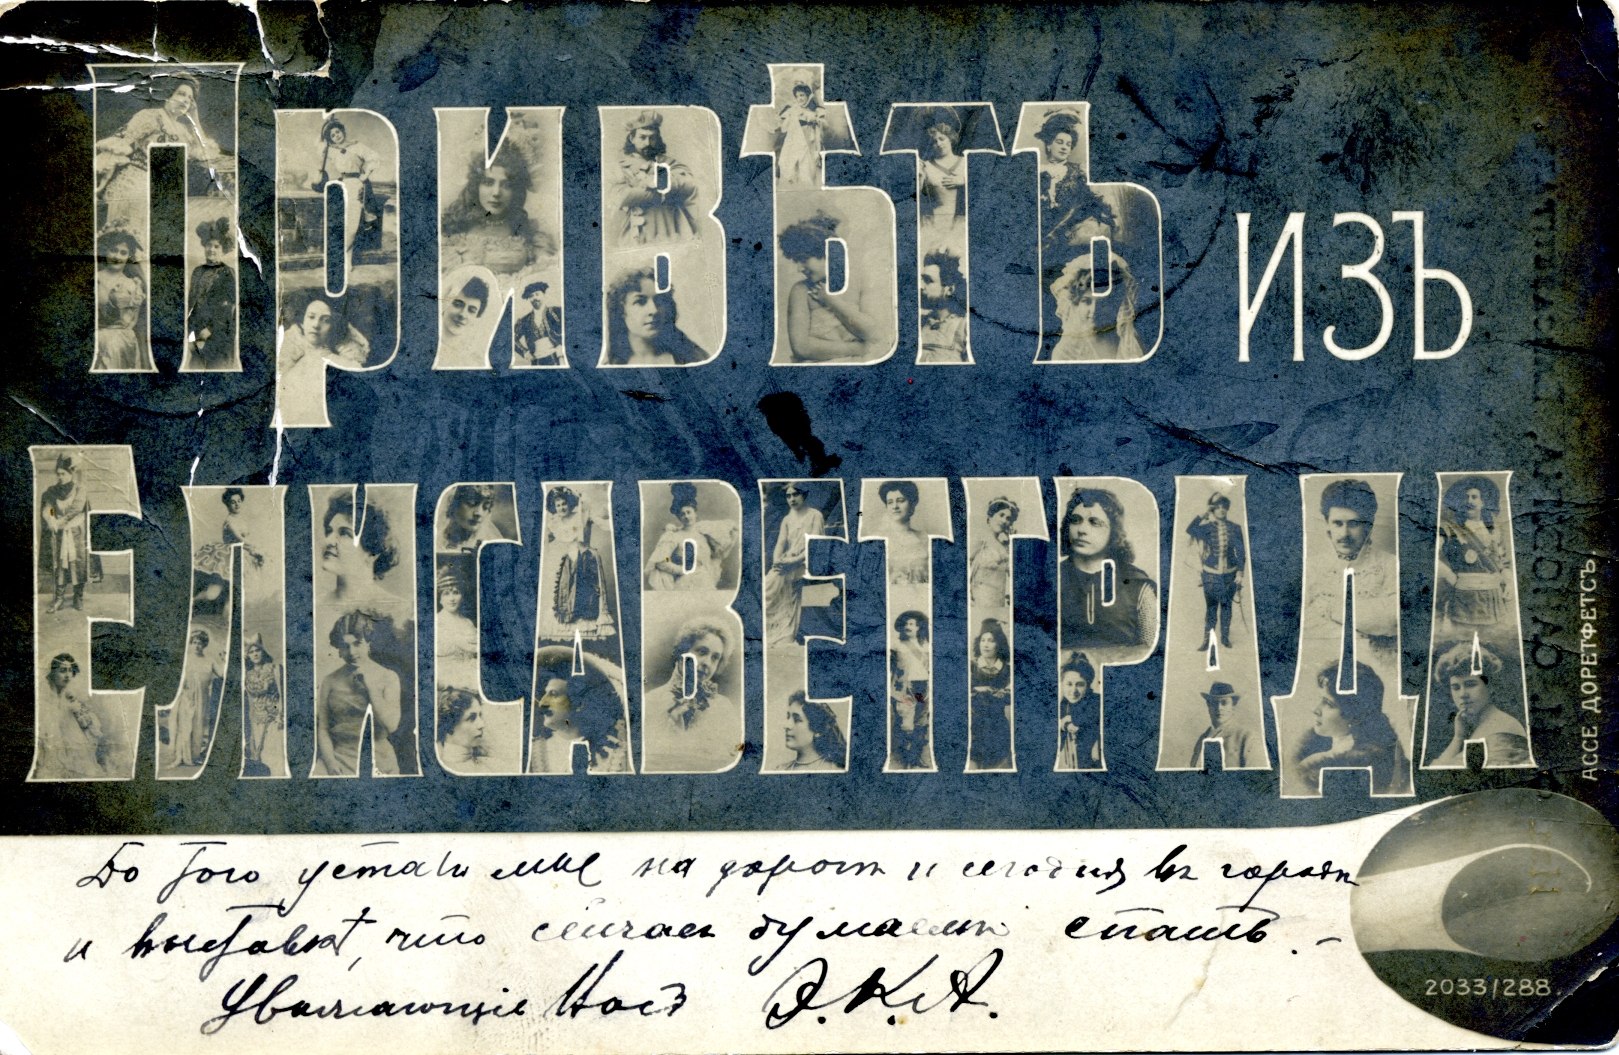 Привѣтъ изъ
Елисаветграда
АССЕ ДОРЕТФЕТСЪ.
До того устали мы на дорогѣ и сегодня въ городѣ
и выставкѣ, что сейчасъ думаемъ спать. –
Уважающіе Васъ Э.К.А.
2033/288.